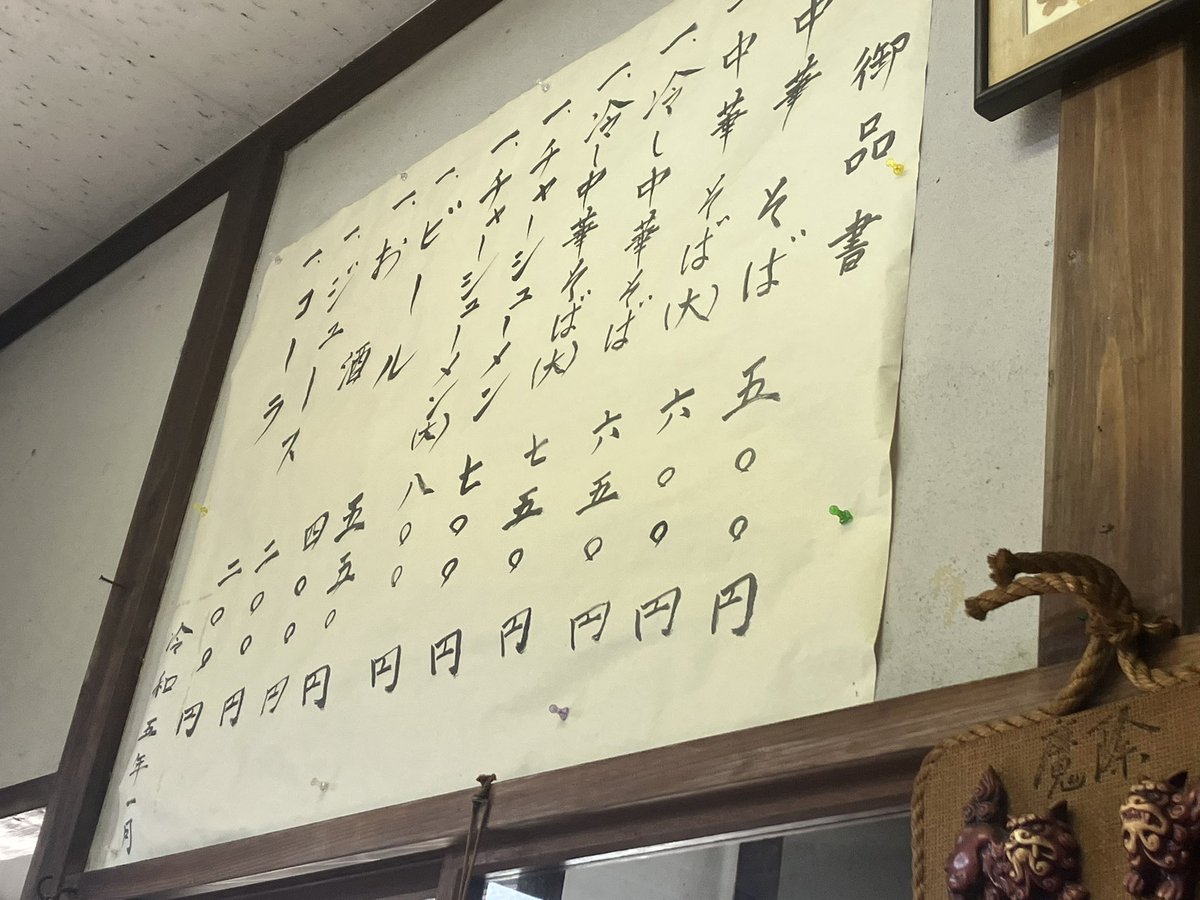 御品書
中華そば 五〇〇円
一.中華そば(大) 六〇〇円
一.冷し中華そば 六五〇円
一.冷し中華そば(大) 七五〇円
一.チャーシューメン 七〇〇円
一.チャーシューメン(大) 八〇〇円
一.ビール 五五〇円
一.お酒 四〇〇円
一.ジュース 二〇〇円
一.コーラ 二〇〇円
令和五年一月
魔除